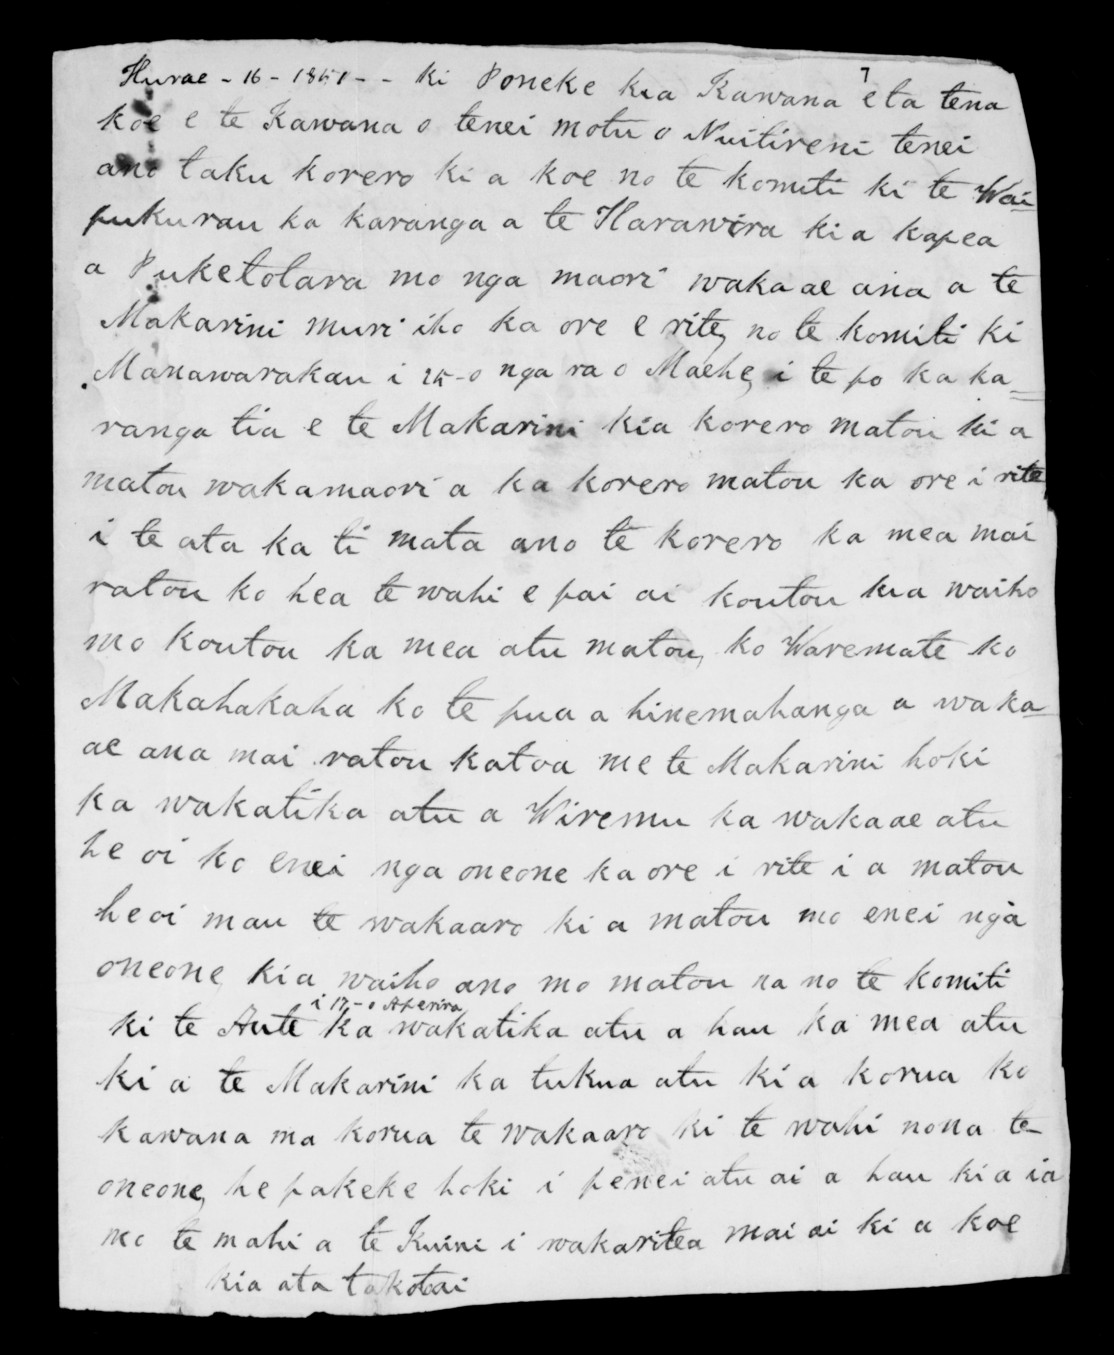 Hurae - 16 - 1851 - - ki Poneke kia Kawana eta tena
7
koe e te Kawana o tenei motu o Nuitireni tenei
ano taku korero ki a koe no te komiti ki te Wai-
pukurau ka karanga a te Harawira kia kapea
a Puketotara mo nga maori wakaae ana a te
Makarini muri iho ka ore e rite, no te komiti ki
Manawarakau i 25-o nga ra o Maehe, i te po ka ka=
ranga tia e te Makarini kia korero matou ki a
matou wakamaori a ka korero matou ka ore i rite
i te ata ka ti mata ano te korero ka mea mai
ratou ko hea te wahi e pai ai koutou kia waiho
mo koutou ka mea atu matou, ko Waremate ko
Makahakaha ko te pua a hinemahanga a waka-
ae ana mai ratou katoa me te Makarini hoki
ka wakatika atu a Wiremu ka wakaae atu
he oi ko enei nga oneone ka ore i rite i a matou
heoi mau te wakaaro ki a matou mo enei nga
oneone, kia waiho ano mo matou na no te komiti
i 17-o Aperira
ki te Aute ka wakatika atu a hau ka mea atu
ki a te Makarini ka tukua atu ki a korua ko
kawana ma korua te wakaaro ki te wahi nona te
oneone, he pakeke hoki i penei atu ai a hau ki a ia
mo te mahi a te Kuini i wakaritea mai ai ki a koe
kia ata takotai